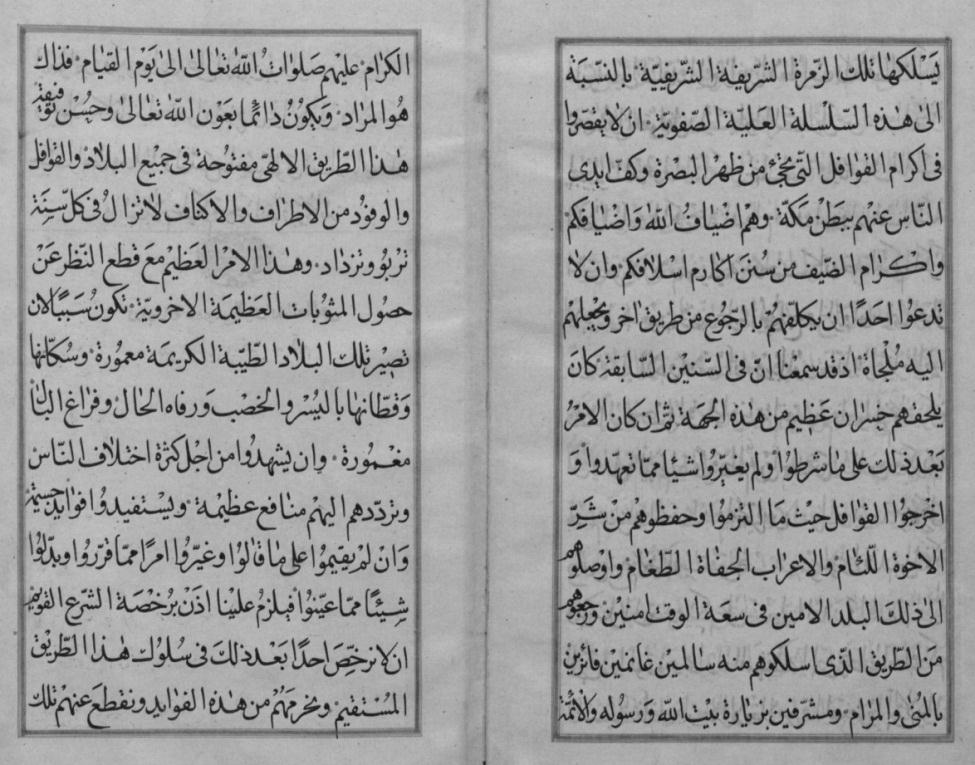 يَسْلكهَا تلك الزّمرة الشّريفة الشّريفيّة بالنّسْبَة
الى هٰذه السّلسلة العَليّة الصّفويّة ان لا يقصّروا
فى اكرام القوافل الّتى تجئ من ظهر البصْرة وكفّ ايدى
النّاس عنهم ببَطن مكّة وهم اضيافُ الله وَاضيافكم
واكرام الضّيف من سُنن اكارم اسلافكم وان لا
تدعوْا احَدًا ان يكلّفهم بالرّجوع من طريق اخر ويجعلهم
اليه مُلْجاة اذ قد سمعْنا انّ فى السّنين السّابقة كانَ
يلحقهم خسران عَظيم من هٰذه الجهَة ثمّ ان كان الامْرُ
بَعْد ذلك على مٰا شرطوْا ولم يغيّروا شيئا ممّا تعهّدوا وَ
اخرجوُا القوافل حيْث مَا التزموُا وحفظوهم من شَرّ
الاخوة اللّئام والاعراب الجفاة الطّغام واوْصلوُهم
الى ذلكَ البلد الامين فى سعَة الوقت امنيْن ورَجعوهم
مَن الطّريق الّذى اسلكوهم منه سالميْن غانمين فائزين
بالمُنٰى والمرَام ومشرّفين بزيٰارة بيْت الله وَرسوُله والائمّة
الكرٰام عليْهم صَلوٰات الله تعَالىٰ الىٰ يَوْم القيٰام فذاك
هُوا لمرَاد وَيكوُنُ دٰائما بعَوْن الله تعَالىٰ وحُسْن توفيقه
هٰذا الطّريق الالهىّ مفتوُحة فى جميْع البلاد والقوٰافل
والوفوُد من الاطرٰاف والاكناف لاتزال فى كل سنَة
تربوُ وتزدَاد وهٰذا الامْر العَظيْم مَع قطع النّظر عَنْ
حصُول المثوُبات العَظيمَة الاخرويّة تكونُ سَببًا لان
تصيْر تلك البلاد الطّيّبة الكريمَة معموُرة وسُكّانها
وَقطّانهٰا باليُسْر والخصْب وَرفاه الحٰال وفراغ البال
مغموُرة وان يشهدوُا من اجْل كثرة اختلاف النّاس
وتردّدهم اليهْم منٰافع عظيْمة ويسْتفيدوُا فوٰايد جسيْمة
وَانْ لمْ يقيموُا على مٰا قٰالوُا وغيّروُا امرًا ممّا قرّروا وبدّلوُا
شيئًا ممّا عيّنوُا فيلزمُ عليْنا اذن برُخْصَة الشّرع القويم
ان لا نرخّصَ احدًا بَعْد ذلكَ فى سُلوُك هٰذا الطّريْق
المُسْتقيم ونحرمَهُم من هٰذه الفوٰايد ونقطعَ عنهُمْ تلك